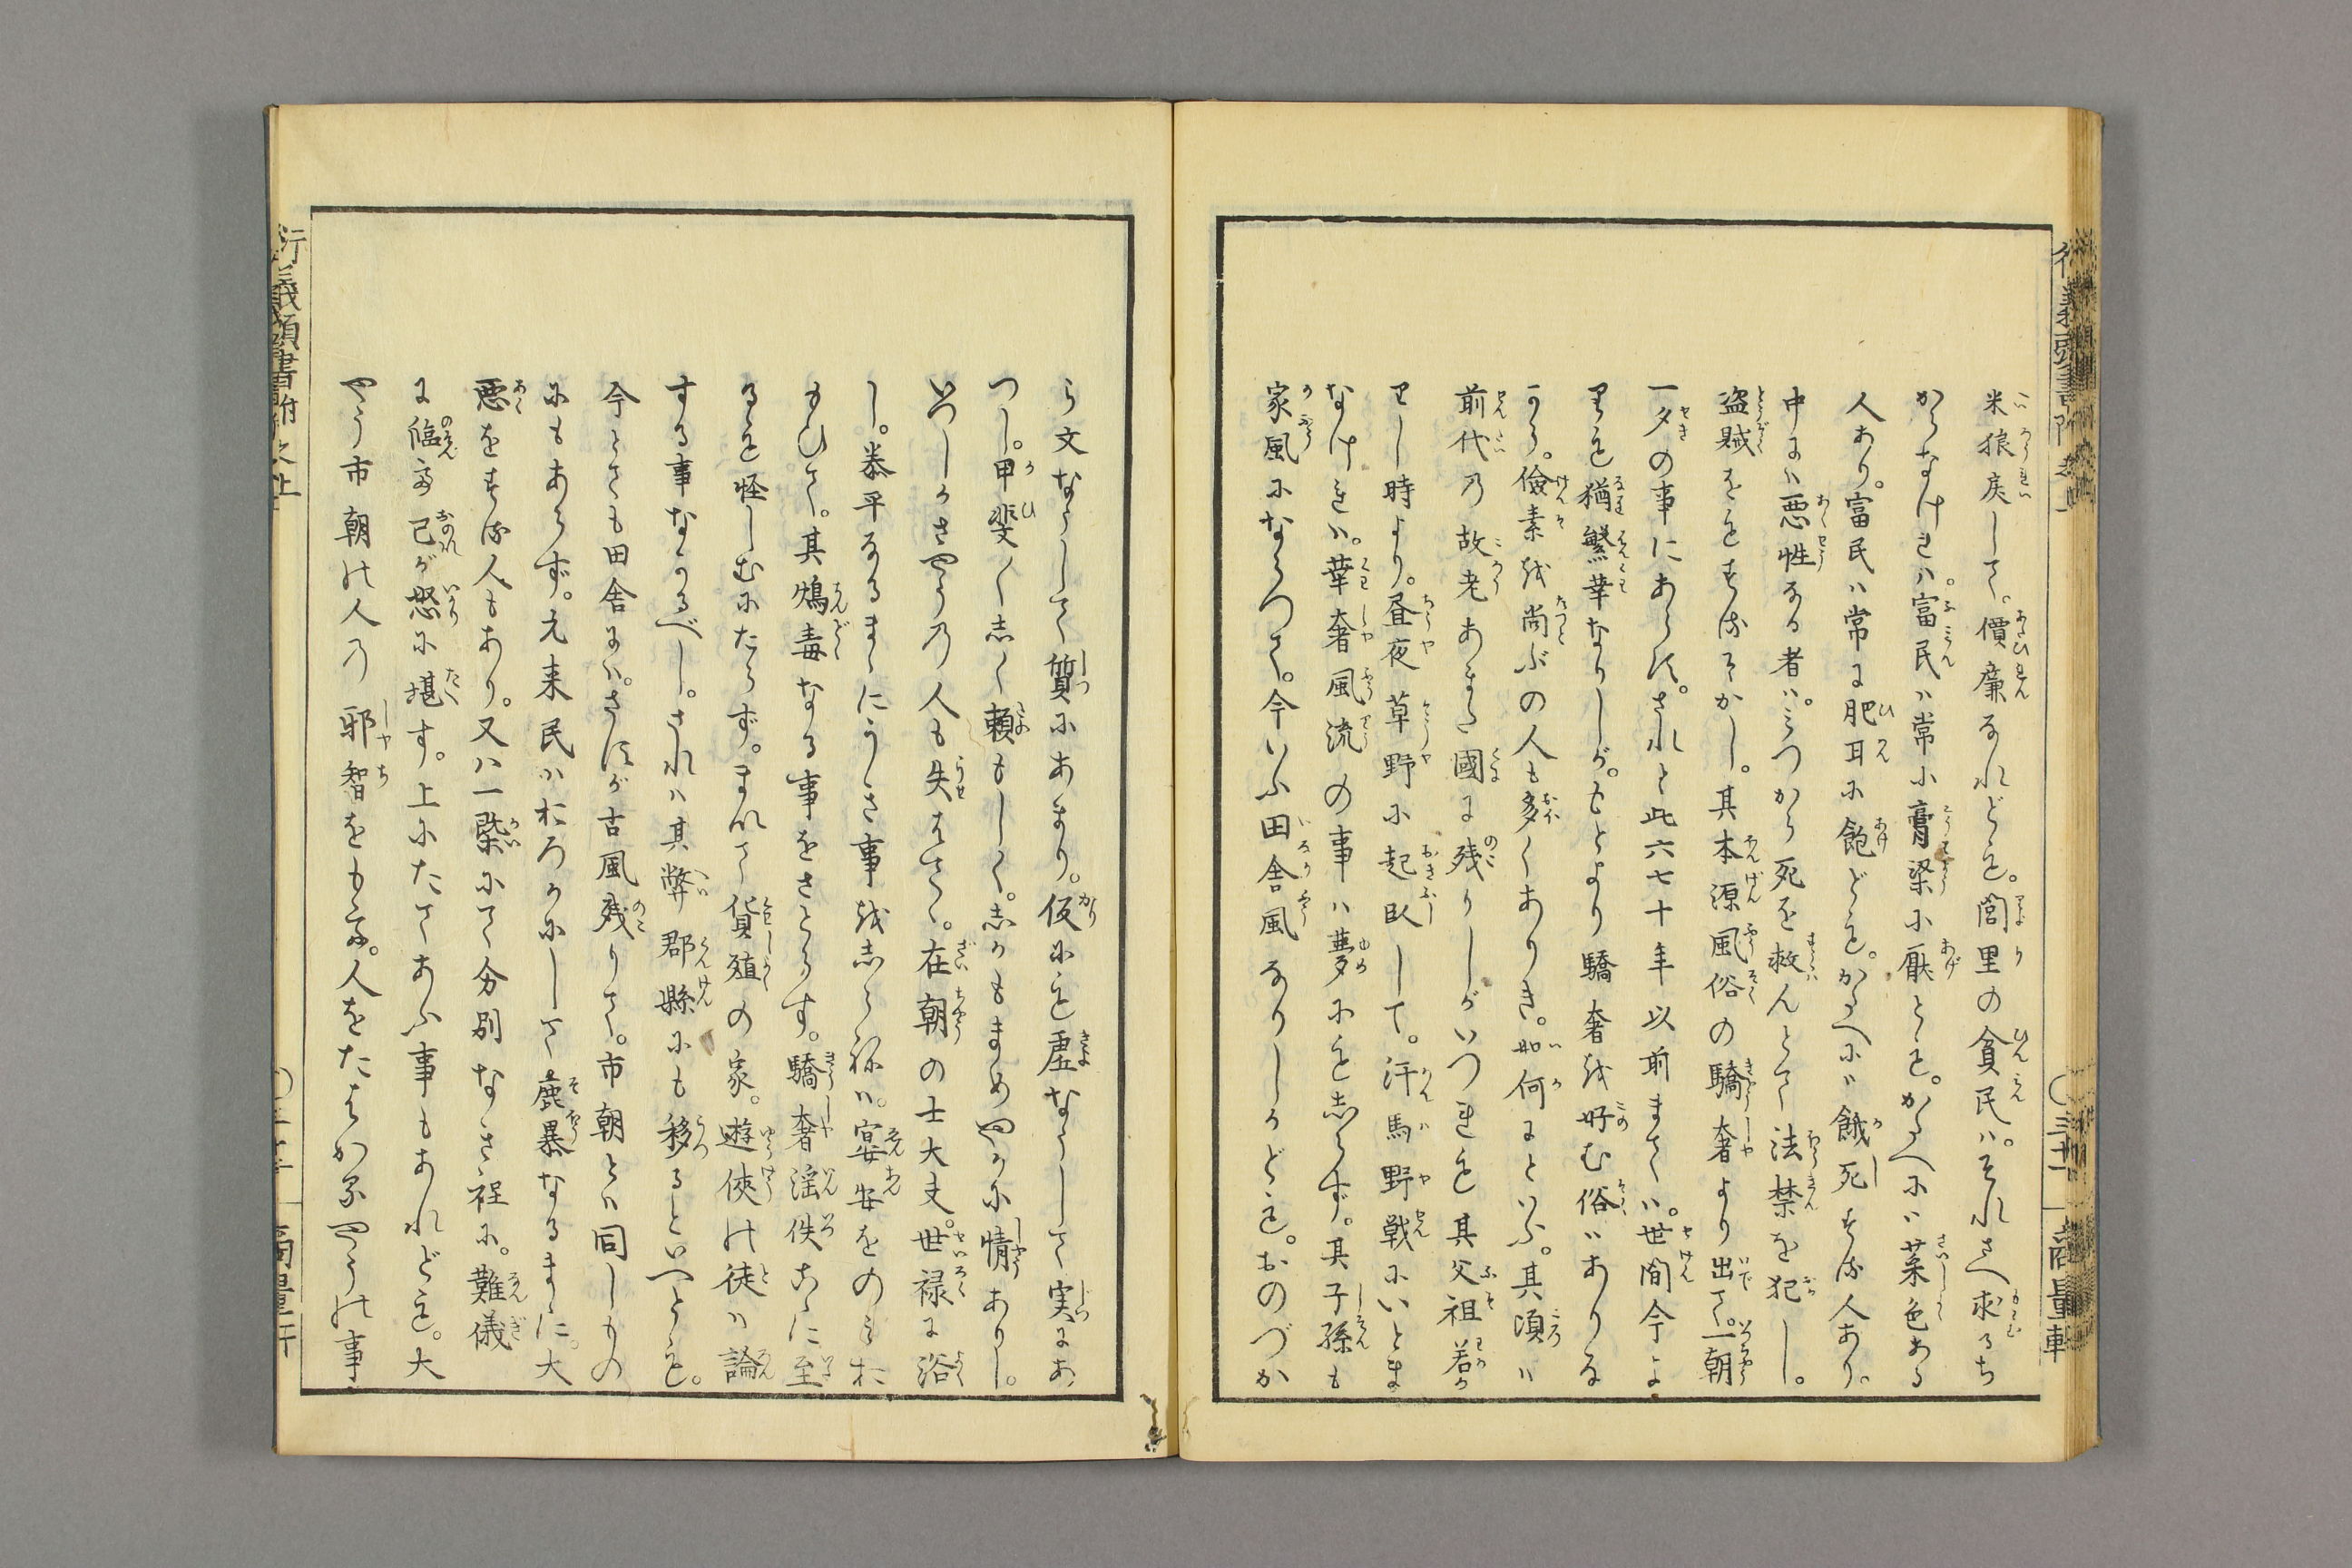 米狼戻して。價廉なれども。閭里の貧民ハ。それさへ求るち
からなけれハ。富民ハ常に膏粱に厭とも。かたへにハ菜色ある
人あり。富民ハ常に肥耳に飽ども。かたへにハ餓死する人あり。
中にハ悪性なる者ハ。みつから死を救んとて法禁を犯し。
盗賊をもするぞかし。其本源風俗の驕奢より出て。一朝
一夕の事にあらす。されと此六七十年以前まてハ。世間今よ
りも猶繁華なりしが。もとより驕奢を好む俗ハありな
から。儉素を尚ぶの人も多くありき。如何にといふ。其頃ハ
前代の故老あまた國に残りしがいつれも其父祖若か
りし時より。昼夜草野に起臥して。汗馬野戦にいとま
なけれハ。華奢風流の事ハ夢にも志らず。其子孫も
家風にならつて。今いふ田舎風なりしかども。おのづか
ら文ならして質にあまり。仮にも虚ならして実にあ
つし。甲斐〳〵志く頼もしく。志かもまめやかに情ありし。
いつしかさやうの人も失はてゝ。在朝の士大夫。世禄に浴
し。泰平なるまゝにうき事を志らねハ。宴安をのみお
もひて。其鴆毒なる事をさとらす。驕奢淫佚こゝに至
るも怪しむにたらず。まして貨殖の家。遊侠の徒ハ論
する事なかるべし。されハ其弊郡縣にも移るといへとも。
今とても田舎にハ。さすが古風残りて。市朝とハ同しもの
にもあらず。元来民ハおろかにして麁暴なるまゝに。大
悪をする人もあり。又ハ一槩にて分別なき程に。難儀
に臨て己が怒に堪す。上にたてあふ事もあれども。大
やう市朝の人の邪智をもて。人をたはかるやうの事
行義頭書附巻之上
商量軒